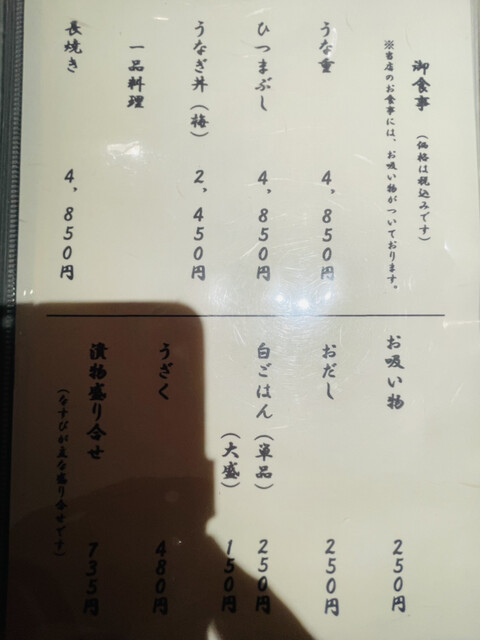 御食事 （価格は税込みです）
※当店のお食事には、お吸い物がついております。
うな重 4,850円
ひつまぶし 4,850円
うなぎ丼（梅） 2,450円
一品料理
長焼き 4,850円
お吸い物 250円
おだし 250円
白ごはん（単品） 250円
（大盛） 150円
うざく 480円
漬物盛り合せ 735円
（なすびが主な盛り合せです）